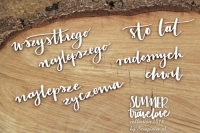 wszystkiego
najlepszego
sto lat
radosnych
chwil
najlepsze
życzenia
SUMMER
travelove